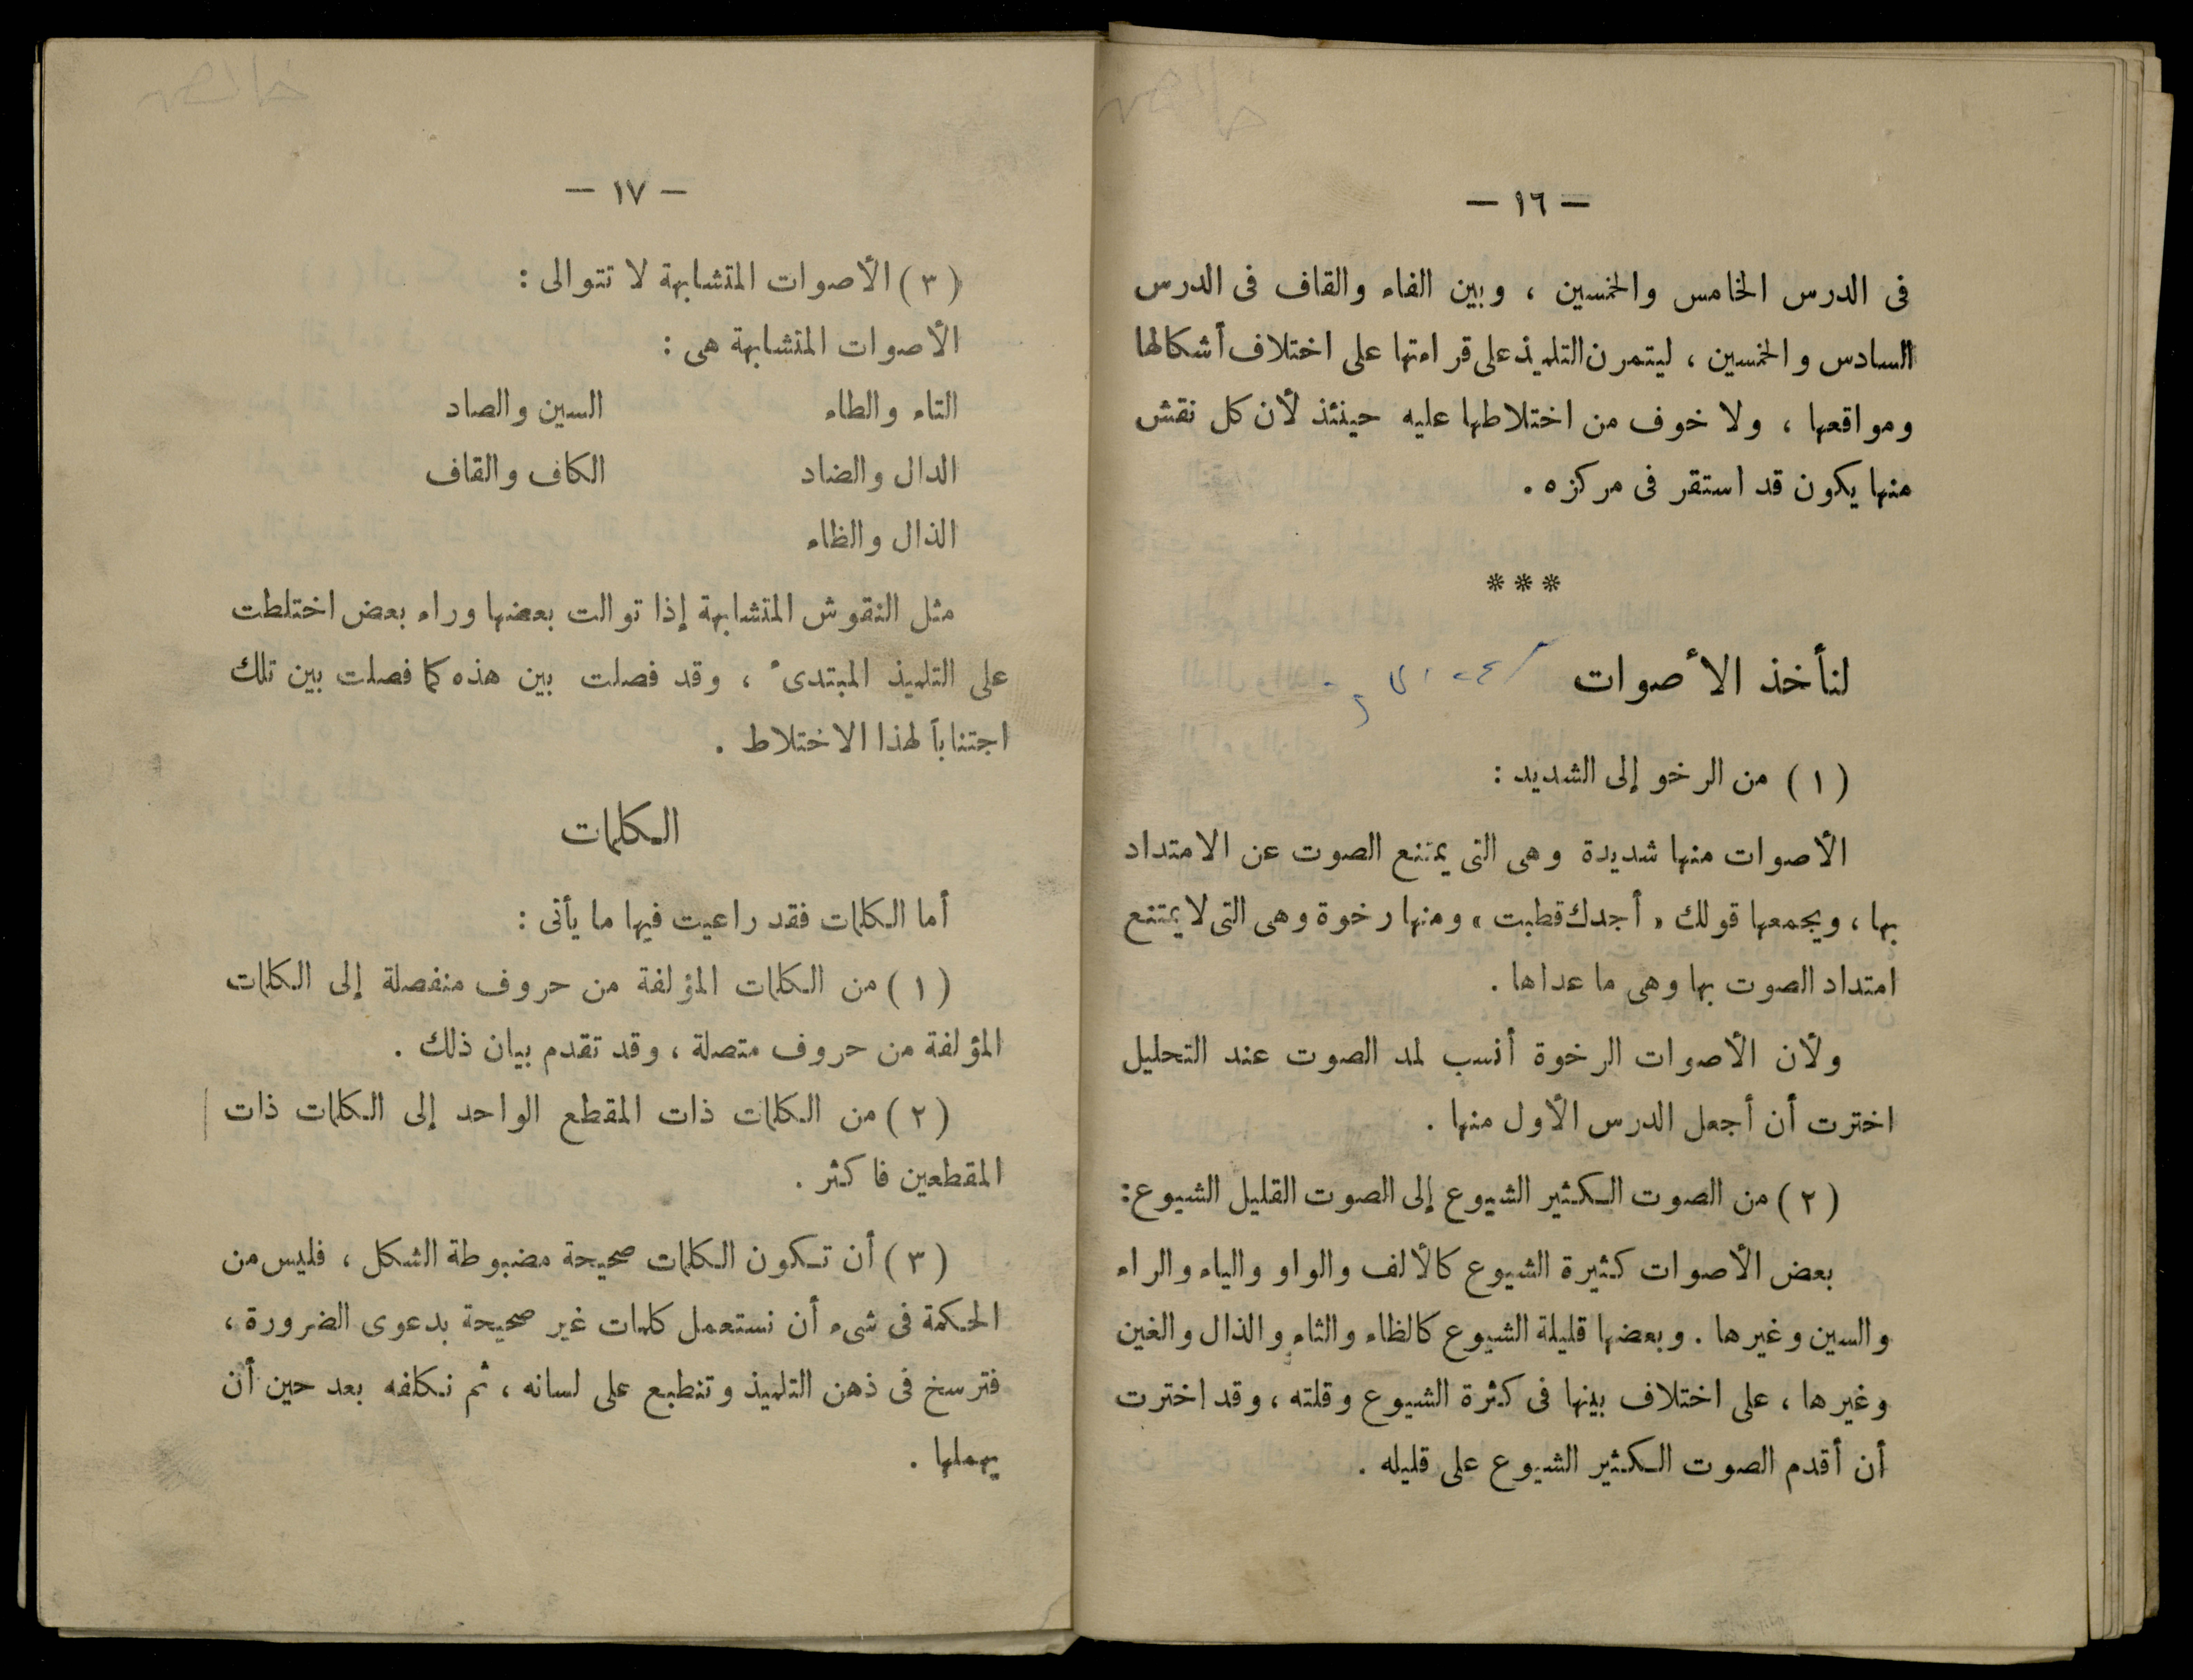 — ١٦ —
فى الدرس الخامس والخمسين ، وبين الفاء والقاف فى الدرس
السادس والخمسين ، ليتمرن التلميذ على قراءتها على اختلاف أشكالها
ومواقعها ، ولا خوف من اختلاطها عليه حينئذ لأن كل نقش
منها يكون قد استقر فى مركزه .
***
لنأخذ الأصوات
( ١ ) من الرخو إلى الشديد :
الأصوات منها شديدة وهى التى يمتنع الصوت عن الامتداد
بها ، ويجمعها قولك « أجدك قطبت » ومنها رخوة وهى التى لا يمتنع
امتداد الصوت بها وهى ما عداها .
ولأن الأصوات الرخوة أنسب لمد الصوت عند التحليل
اخترت أن أجعل الدرس الأول منها .
( ٢ ) من الصوت الكثير الشيوع إلى الصوت القليل الشيوع :
بعض الأصوات كثيرة الشيوع كالألف والواو والياء والراء
والسين وغيرها . وبعضها قليلة الشيوع كالظاء والثاء والذال والغين
وغيرها ، على اختلاف بينها فى كثرة الشيوع وقلته ، وقد اخترت
أن أقدم الصوت الكثير الشيوع على قليله .
— ١٧ —
( ٣ ) الأصوات المتشابهة لا تتوالى :
الأصوات المتشابهة هى :
التاء والطاء السين والصاد
الدال والضاد الكاف والقاف
الذال والظاء
مثل النقوش المتشابهة إذا توالت بعضها وراء بعض اختلطت
على التلميذ المبتدىء ، وقد فصلت بين هذه كما فصلت بين تلك
اجتناباً لهذا الاختلاط .
الكلمات
أما الكلمات فقد راعيت فيها ما يأتى :
( ١ ) من الكلمات المؤلفة من حروف منفصلة إلى الكلمات
المؤلفة من حروف متصلة ، وقد تقدم بيان ذلك .
( ٢ ) من الكلمات ذات المقطع الواحد إلى الكلمات ذات
المقطعين فاكثر .
( ٣ ) أن تكون الكلمات صحيحة مضبوطة الشكل ، فليس من
الحكمة فى شىء أن نستعمل كلمات غير صحيحة بدعوى الضرورة ،
فترسخ فى ذهن التلميذ وتنطبع على لسانه ، ثم نكلفه بعد حين أن
يهملها .